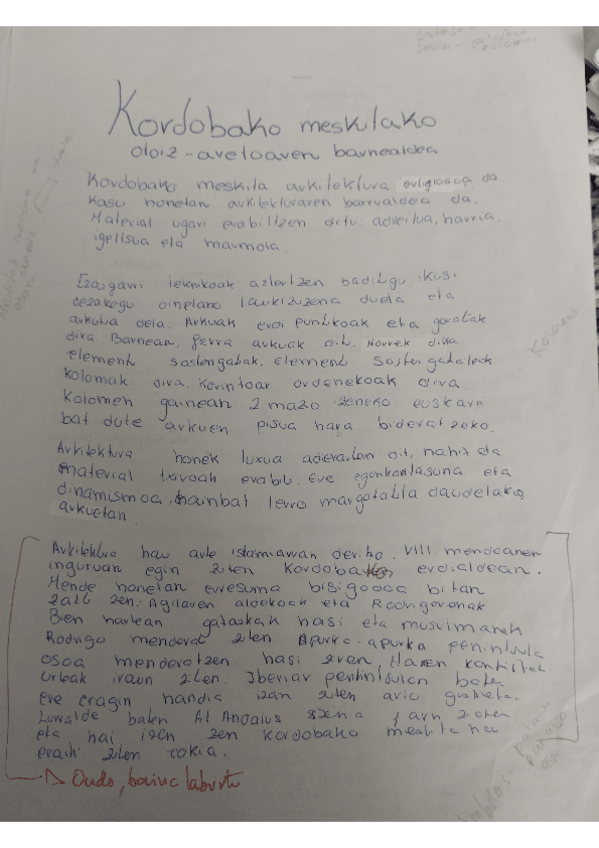 Kordobako meskitako
otoitz-aretoaren barnealdea
Kordobako meskita arkitektura erligiosoa da
kasu honetan arkitekturaren barrualdea da.
Material ugari erabiltzen ditu: adreilua, harria
igeltsua eta marmola.
Ezaugarri teknikoak aztertzen baditugu ikusi
dezakegu oinplano laukizuzena duela eta
arkuha dela. Arkuak erdi puntukoak eta
dira Barnean, ferra arkuak dit. Horrek dira
element sostengatuak. Element sostengatzaileak
kolomak dira, korintoar ordenekoak dira
Kolomen gainean zimazo izeneko euskarri
bat dute arkuen pisua hara bideratzeko.
Arkitektura honek luxua adierazten dit, nahiz eta
material txiroak erabili. Ere egonkortasuna eta
dinamismoa, hainbat lerro margotuta daudelako
arkuetan
Arkitektura hau arte islamiarran deritzo. VIII mendearen
inguruan egin zuten Kordobako erdialdean.
Mende honetan erresuma bisigodoa bitan
zatitu zen: Agilaren aldekoak eta Rodrigorenak
Bien hartean gatazkak hasi eta musulmanek
Rodrigo menderatu zuten. Apurka-apurka peninsula
osoa menderatzen hasi ziren, Haien konkistak
urteak iraun zuten. Iberiar penintsulan bate
ere eragin handia izan zuten arlo guztietan.
Lurralde bateri Al Andalus izena jarri zioten
eta hai izan zen Kordobako meskita hau
eraiki zuten tokia.
Ondo, baina laburtu
Kolorea